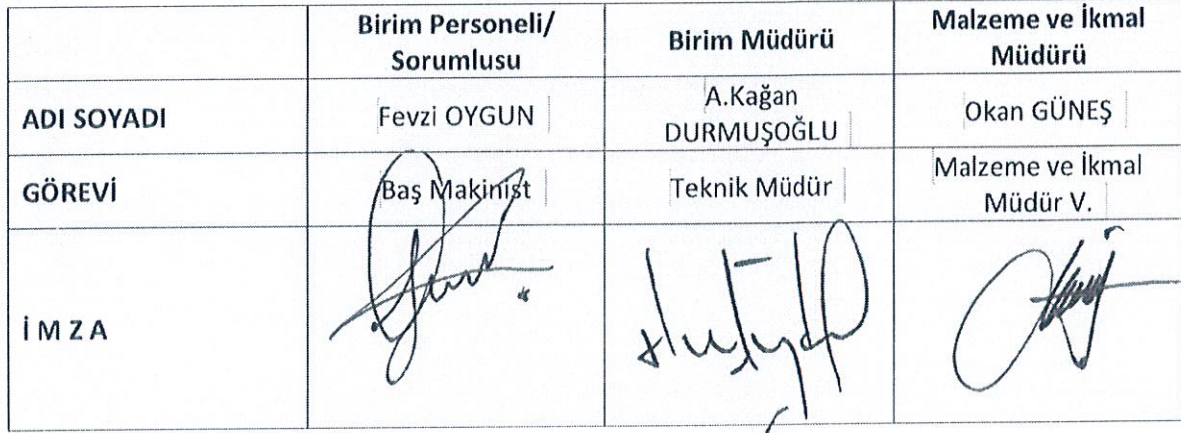 Birim Personeli/
Sorumlusu
Birim Müdürü
Malzeme ve İkmal
Müdürü
ADI SOYADI
Fevzi OYGUN
A.Kağan
DURMUŞOĞLU
Okan GÜNEŞ
GÖREVİ
Baş Makinist
Teknik Müdür
Malzeme ve İkmal
Müdür V.
İ M Z A